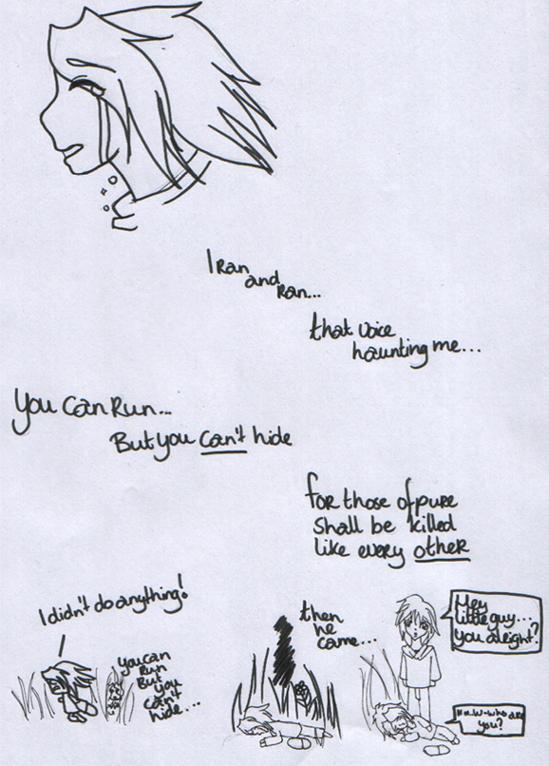 I Ran
and
Ran...
that voice
haunting me...
You Can Run...
But you can't hide
for those of pure
shall be killed
like every other
I didn't do anything!
you can
Run
But
you
can't
hide...
then
he
came...
Hey
little guy...
you alright?
W-who are
you?